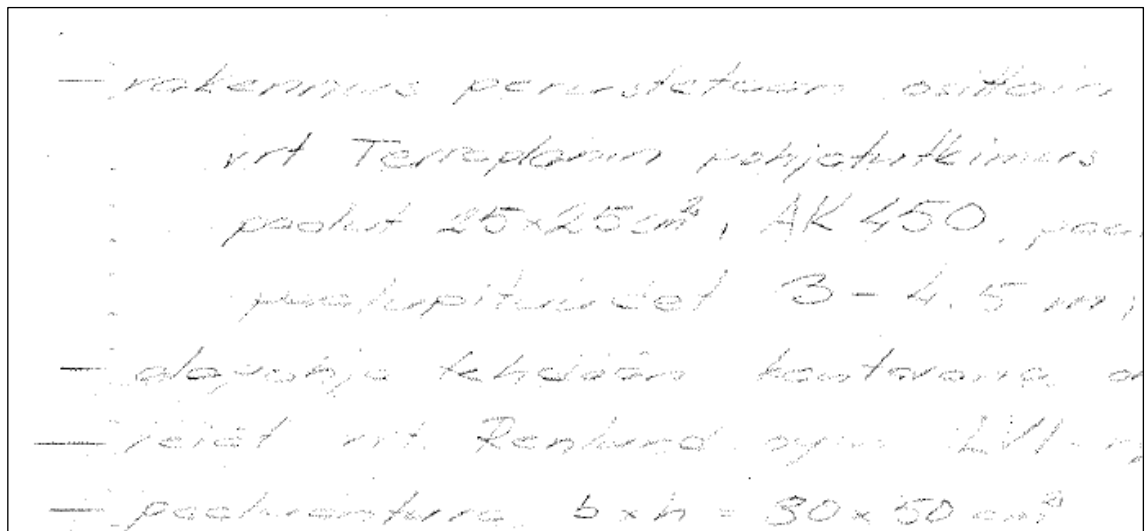 - rakennus perustetaan osittain
vrt Terraplanin pohjatutkimus
paalut 25x25 cm², AK 450,
paalupituudet 3 - 4.5 m,
- alapohja tehdään kantavana
- reiät vrt. Renlund oy:n LVI-
- paaluantura, b x h = 30 x 50 cm²